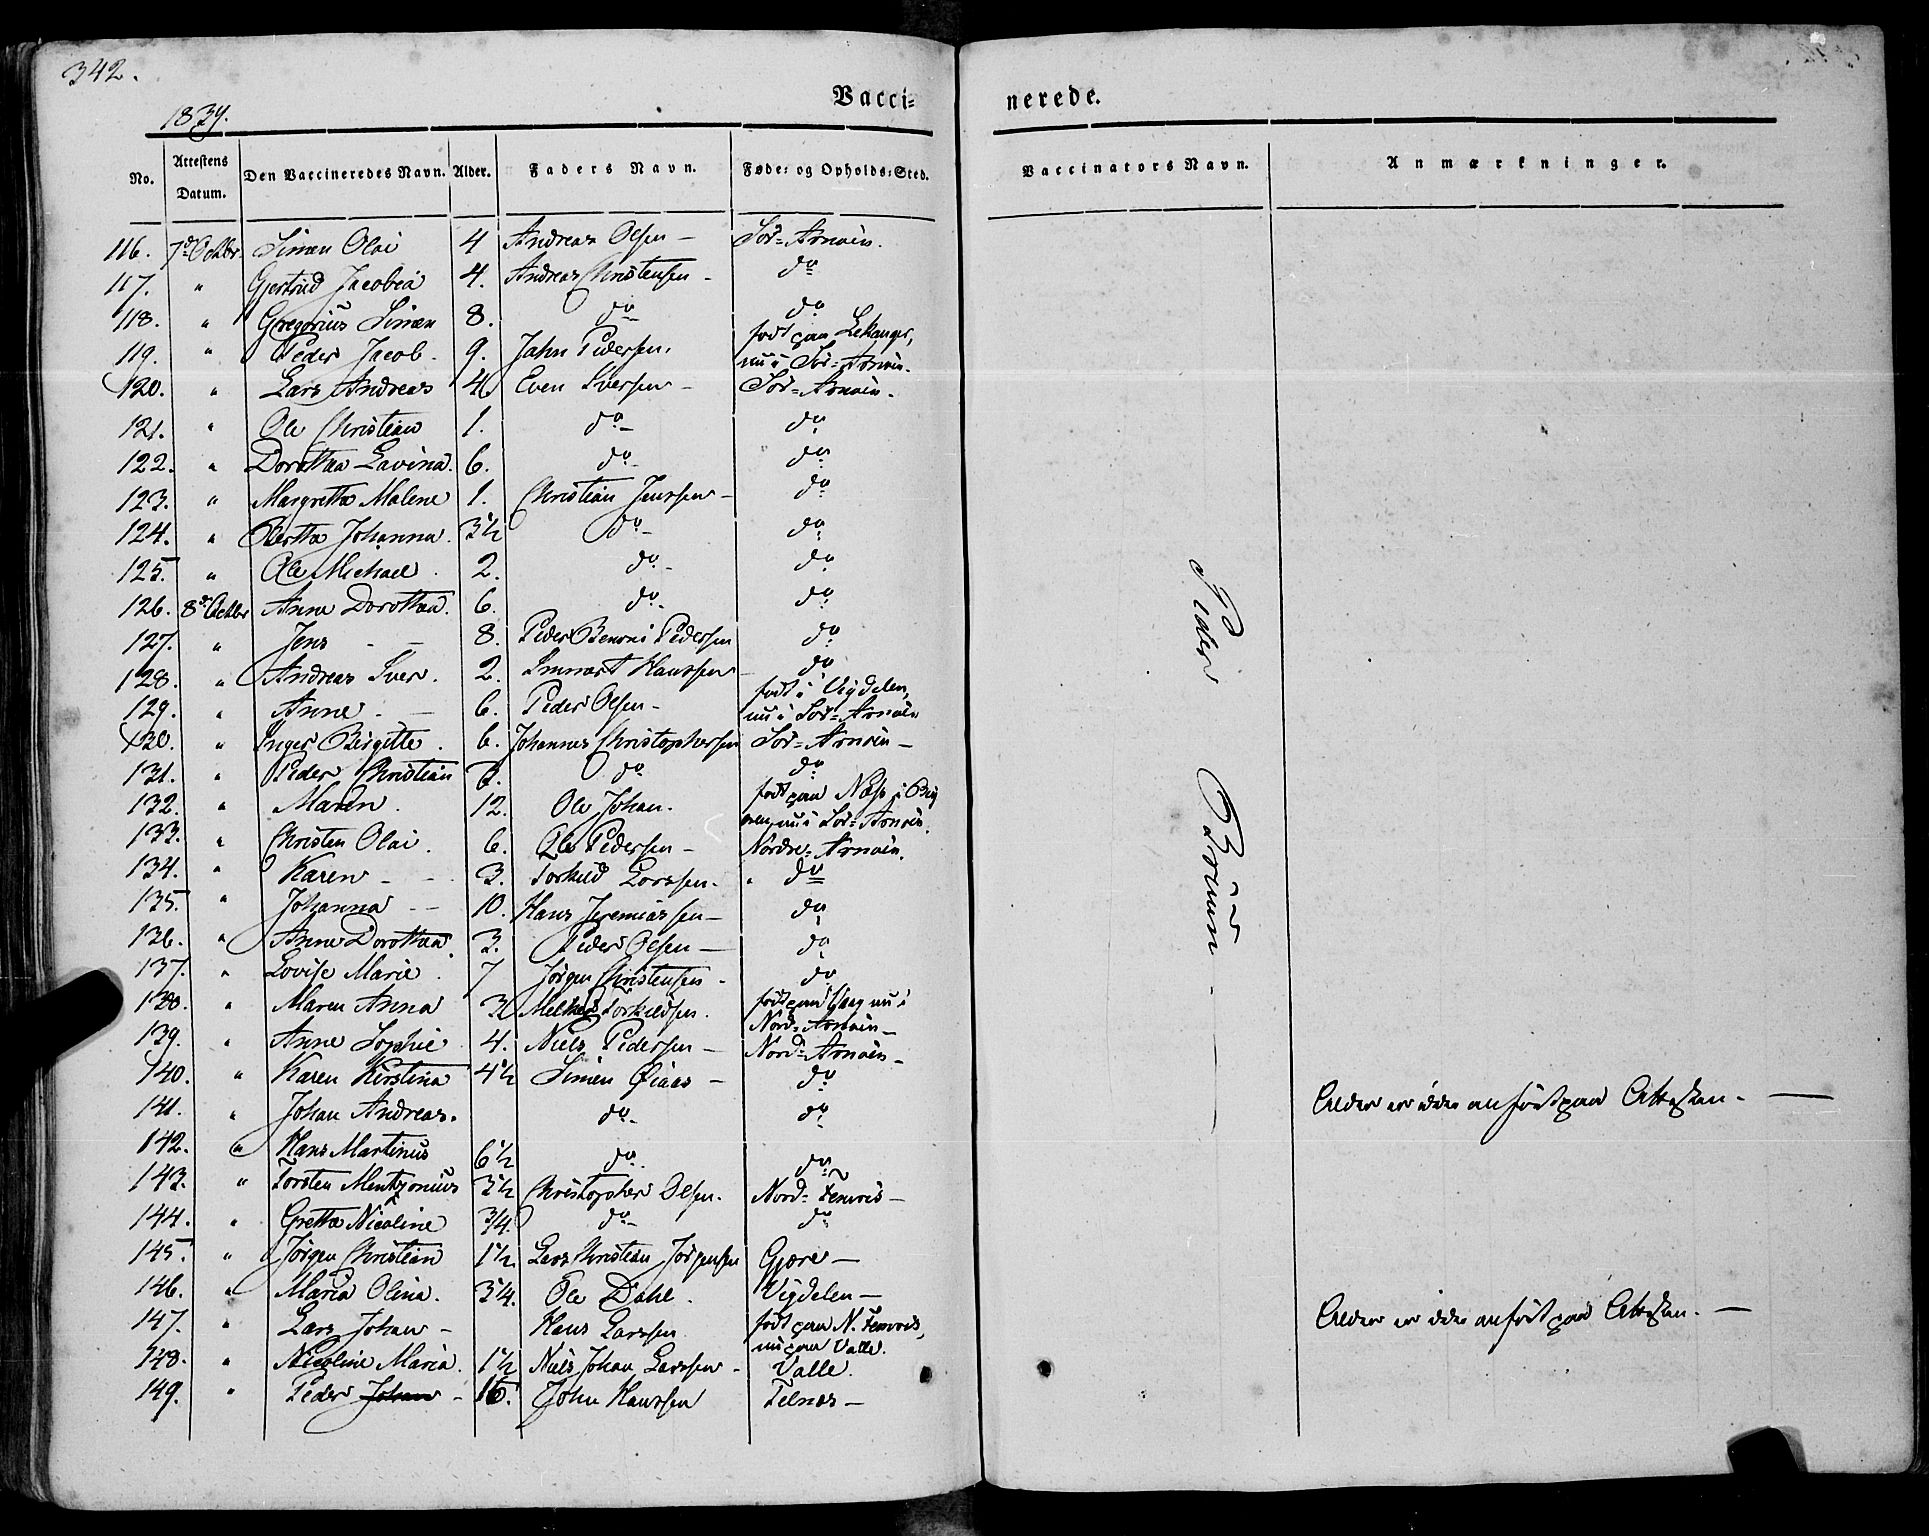 342.
1839.
Vacci- nerede.
No. Attestens Datum. Den Vaccineredes Navn. Alder. Faders Navn. Føde- og Opholds-Sted. Vaccinators Navn. Anmærkninger.
116. 7de Octbr. Simen Olai 4 Andreas Olsen - Sör-Arnøin.
117. " Gjertrud Jacobia 4. Andreas Christensen - do
118. " Gregorius Simen 8. do do
119. " Peder Jacob. 9. John Pedersen. født paa Lekanger,
nu i Sör-Arnøin.
120. " Lars Andreas 4 Even Iversen - Sör-Arnøin.
121. " Ole Christian 1. do- do
122. " Dorothea Lavina. 6. do- do
123. " Margretha Malene 1. Christian Jenssen - do
124. " Bertha Johanna. 3½ do- do
125. " Ole Michael. 2. do- do
126. 8de Octbr Anne Dorothea. 6. do- do
127. " Jens - - 8. Peder Benoni Pedersen do
128. " Andreas Iver. 2. Hanssen do
129. " Anne - - 6. Peder Olsen - født i Vigdelen,
nu i Sör-Arnøin
130. " Inger Birgitte. 6. Johannes Christophersen Sör-Arnøin -
131. " Peder Christian 3. do do
132. " Maren. 12. Ole Johan. født paa Næss i
nu i Sör-Arnøin.
133. " Christen Olai. 6. Ole Pedersen - Nordre-Arnøin.
134. " Karen - - 3. Torkild Larssen. do
135. " Johanna - - 10. Hans Jeremiassen - do
136. " Anne Dorothea. 3. Peder Olsen - do
137. " Lovise Marie. 7 Jörgen Christensen - do
138. " Maren Anna 3 Melkior Torkildsen. født paa Vaag nu i
Nord-Arnøin -
139. " Anne Sophie 4. Niels Pedersen - Nord-Arnøin -
140. " Karen Kirstina 4½ Simen - do
141. " Johan Andreas. do- do Alder er ikke anført paa Attesten. -
142. " Hans Martinus 6½ do. do
143. " Torsten Mentzonius 3½ Christopher Olsen. Nord-Femris -
144. " Gretha Nicoline 3/4. do- do
145. " Jörgen Christian 1½ Lars Christian Jörgensen Gjære -
146. " Maria Olina. 3/4. Ole Dahl. Vigdelen -
147. " Lars Johan - Hans Larssen født paa N. Femris,
nu paa Valle. Alder er ikke anført paa Attesten. -
148. " Nicoline Maria. 1½ Niels Johan Larssen - Valle.
149. " Peder Johan - 16. John Hanssen Felnes -
Peder Bruun -